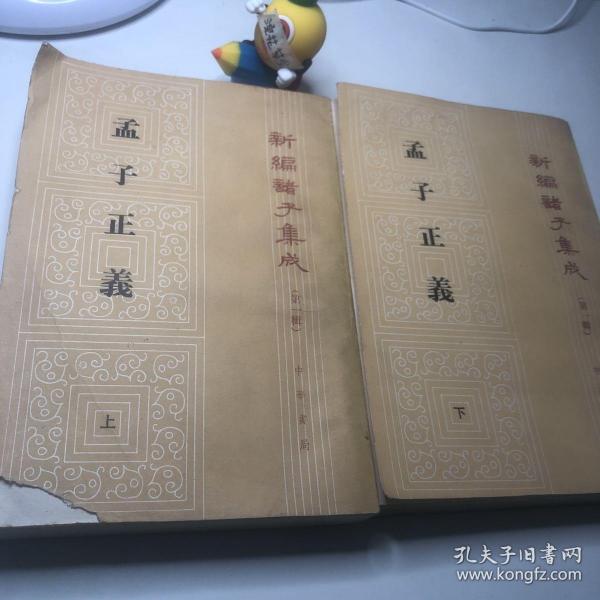 孟子正義
上
新編諸子集成
（第一輯）
中華書局
孟子正義
下
新編諸子集成
（第一輯）
孔夫子旧书网
www.kongfz.com